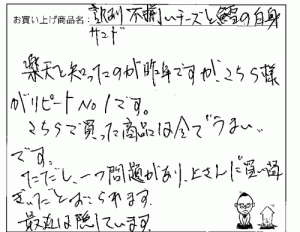 お買い上げ商品名: 訳あり 不揃いチーズと鱈の白身
サンド
楽天を知ったのが昨年ですが、こちら様
がリピートNo1です。
こちらで買った商品は全てうまい
です。
ただし、一つ問題があり、上さんに買い過
ぎだとおこられます。
最近は隠しています。